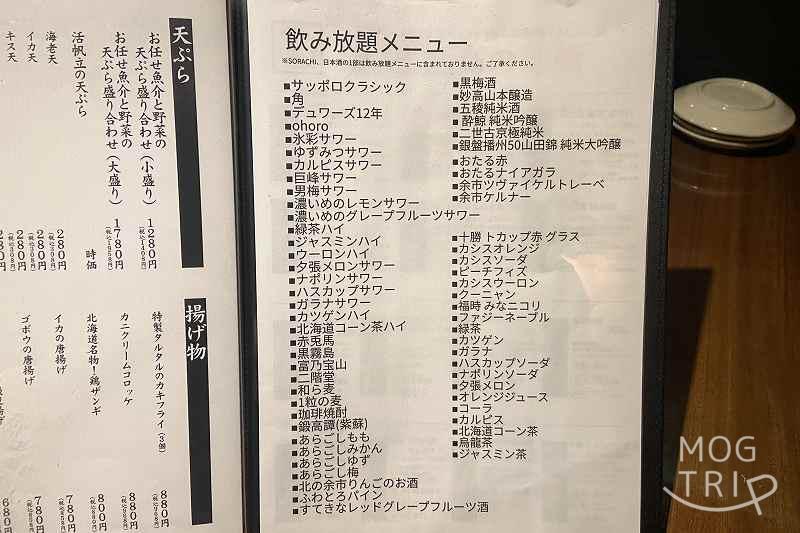 飲み放題メニュー
※SORACHI、日本酒の1部は飲み放題メニューに含まれておりません。ご了承ください。
■サッポロクラシック
■角
■デュワーズ12年
■ohoro
■氷彩サワー
■ゆずみつサワー
■カルピスサワー
■巨峰サワー
■男梅サワー
■濃いめのレモンサワー
■濃いめのグレープフルーツサワー
■緑茶ハイ
■ジャスミンハイ
■ウーロンハイ
■夕張メロンサワー
■ナポリンサワー
■ハスカップサワー
■ガラナサワー
■カツゲンハイ
■北海道コーン茶ハイ
■赤兎馬
■黒霧島
■富乃宝山
■二階堂
■和ら麦
■1粒の麦
■珈琲焼酎
■鍛高譚(紫蘇)
■あらごしもも
■あらごしみかん
■あらごしゆず
■あらごし梅
■北の余市りんごのお酒
■ふわとろパイン
■すてきなレッドグレープフルーツ酒
■黒梅酒
■妙高山本醸造
■五稜純米酒
■酔鯨 純米吟醸
■二世古京極純米
■銀盤播州50山田錦 純米大吟醸
■おたる赤
■おたるナイアガラ
■余市ツヴァイケルトレーベ
■余市ケルナー
■十勝 トカップ赤 グラス
■カシスオレンジ
■カシスソーダ
■ピーチフィズ
■カシスウーロン
■クーニャン
■福時 みなニコリ
■ファジーネーブル
■緑茶
■カツゲン
■ガラナ
■ハスカップソーダ
■ナポリンソーダ
■夕張メロン
■オレンジジュース
■コーラ
■カルピス
■北海道コーン茶
■烏龍茶
■ジャスミン茶
天ぷら
お任せ魚介と野菜の
天ぷら盛り合わせ（小盛り）1280円
（税込1408円）
お任せ魚介と野菜の
天ぷら盛り合わせ（大盛り）1780円
（税込1958円）
活帆立の天ぷら 時価
海老天 280円
（税込308円）
イカ天 280円
（税込308円）
キス天 280円
（税込308円）
揚げ物
特製タルタルのカキフライ（3個） 880円
（税込968円）
カニクリームコロッケ 880円
（税込968円）
北海道名物！鶏ザンギ 800円
（税込880円）
イカの唐揚げ 780円
（税込858円）
ゴボウの唐揚げ 680円
MOG
TRIP